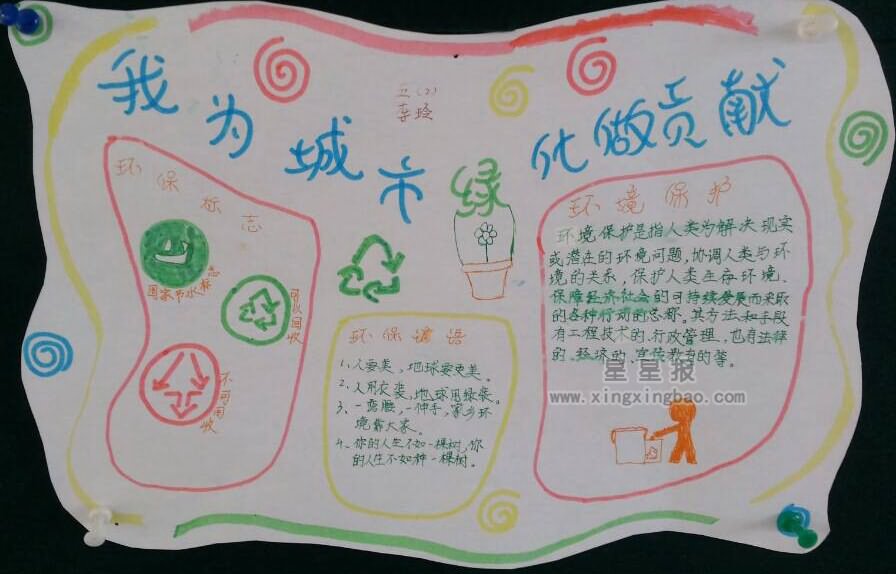 我为城市绿化做贡献
五(2)
李玲
环保标志
国家节水标志
可以回收
不可回收
环保谚语
1、人要美,地球要更美。
2、人用衣装,地球用绿装。
3、一弯腰,一伸手,家乡环
境靠大家。
4、你的人生不如一棵树,你
的人生不如种一棵树。
环境保护
环境保护是指人类为解决现实
或潜在的环境问题,协调人类与环
境的关系,保护人类生存环境、
保障经济社会的可持续发展而采取
的各种行动的总称。其方法和手段
有工程技术的、行政管理,也有法律
的、经济的、宣传教育的等。
星星报
www.xingxingbao.com